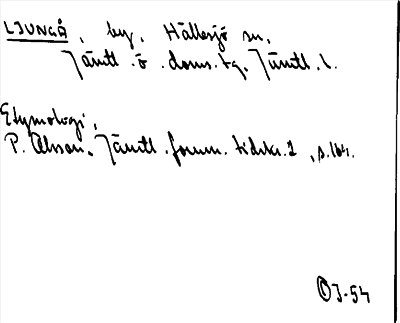 LJUNGÅ, by, Hällesjö sn,
Jämtl. ö. doms. tg, Jämtl. l.
Etymologi,
P. Olsson, Jämtl. fornm. tidskr. 1, s.
ÖJ-54